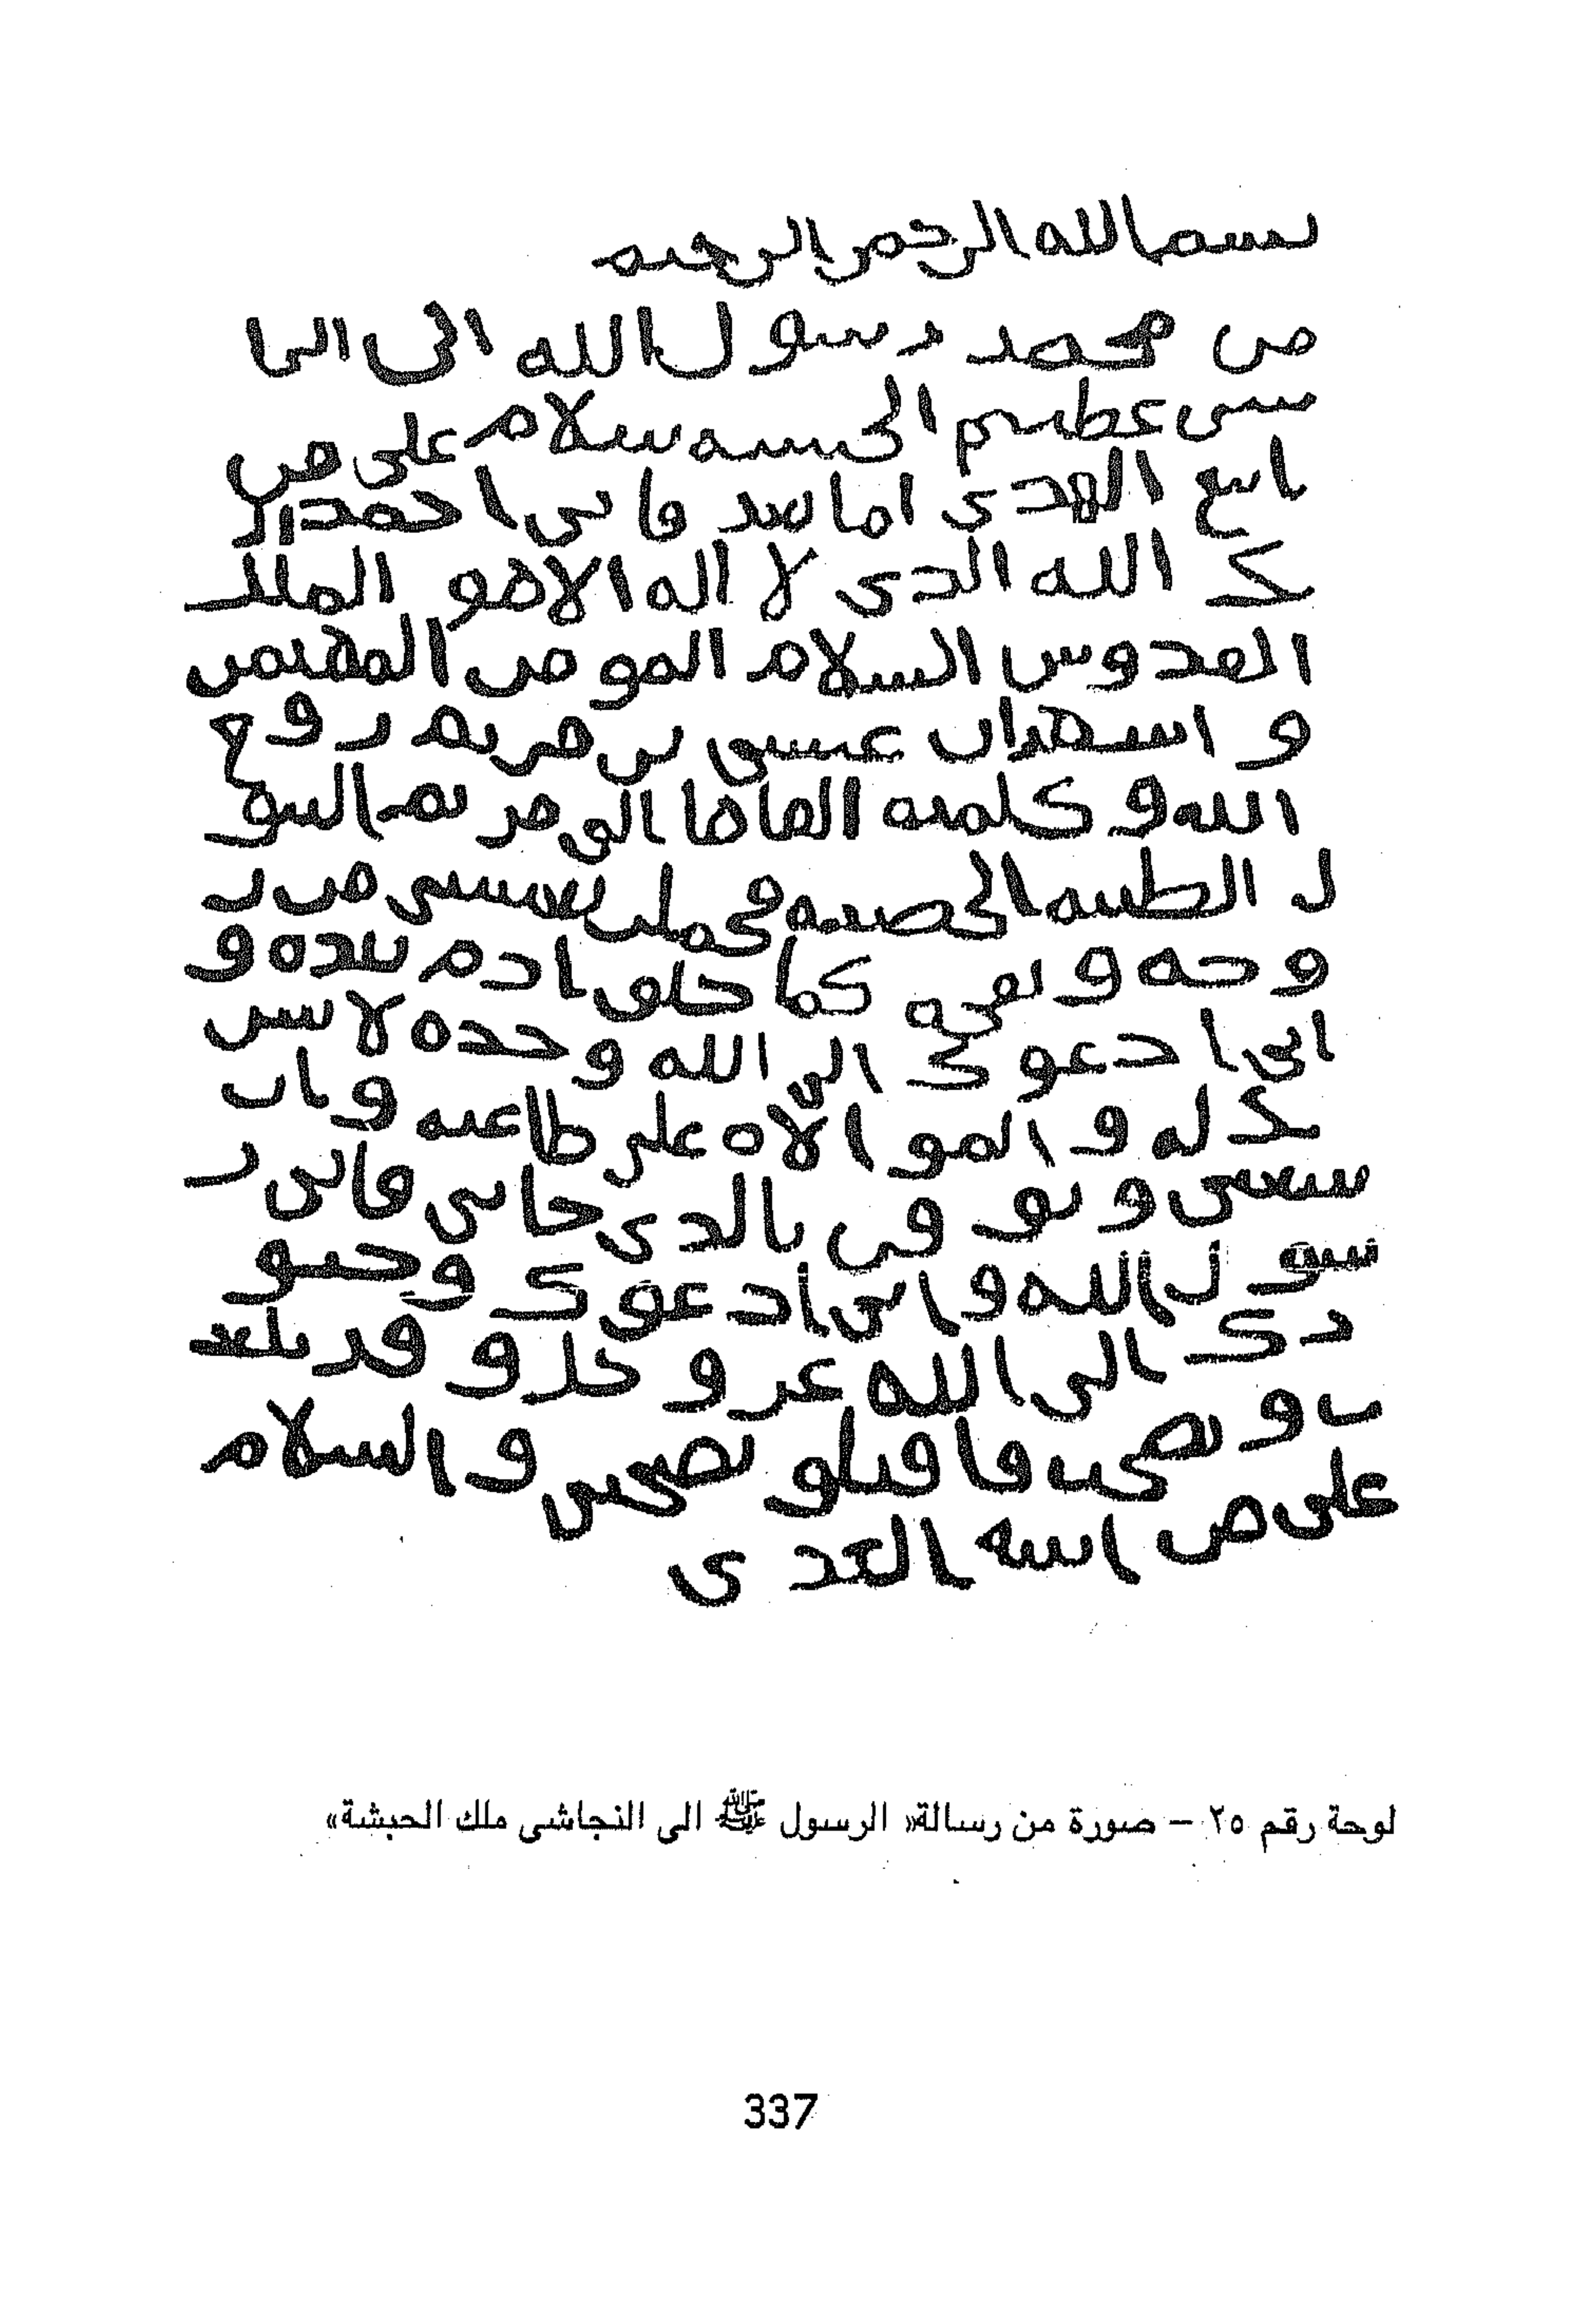 بسم الله الرحمن الرحيم
من محمد رسول الله الى النجا
شى عظيم الحبشة سلام على من
اتبع الهدى اما بعد فانى احمد الي
ك الله الذى لا اله الا هو الملك
القدوس السلام المومن المهيمن
و اشهد ان عيسى بن مريم روح
الله و كلمته القاها الى مريم البتو
ل الطيبة الحصينة فحملت بعيسى من ر
وحه و نفخه كما خلق ادم بيده و
انى ادعوك الى الله وحده لا شر
يك له و الموالاة على طاعته و ان
تتبعنى و توقن بالذى جانى فانى ر
سول الله و انى ادعوك و جنو
دك الى الله عز و جل و قد بلغ
ت و نصحت فاقبلو نصيحتى و السلام
على من اتبع الهدى
لوحة رقم ٢٥ – صورة من رسالة« الرسول ﷺ الى النجاشى ملك الحبشة»
337